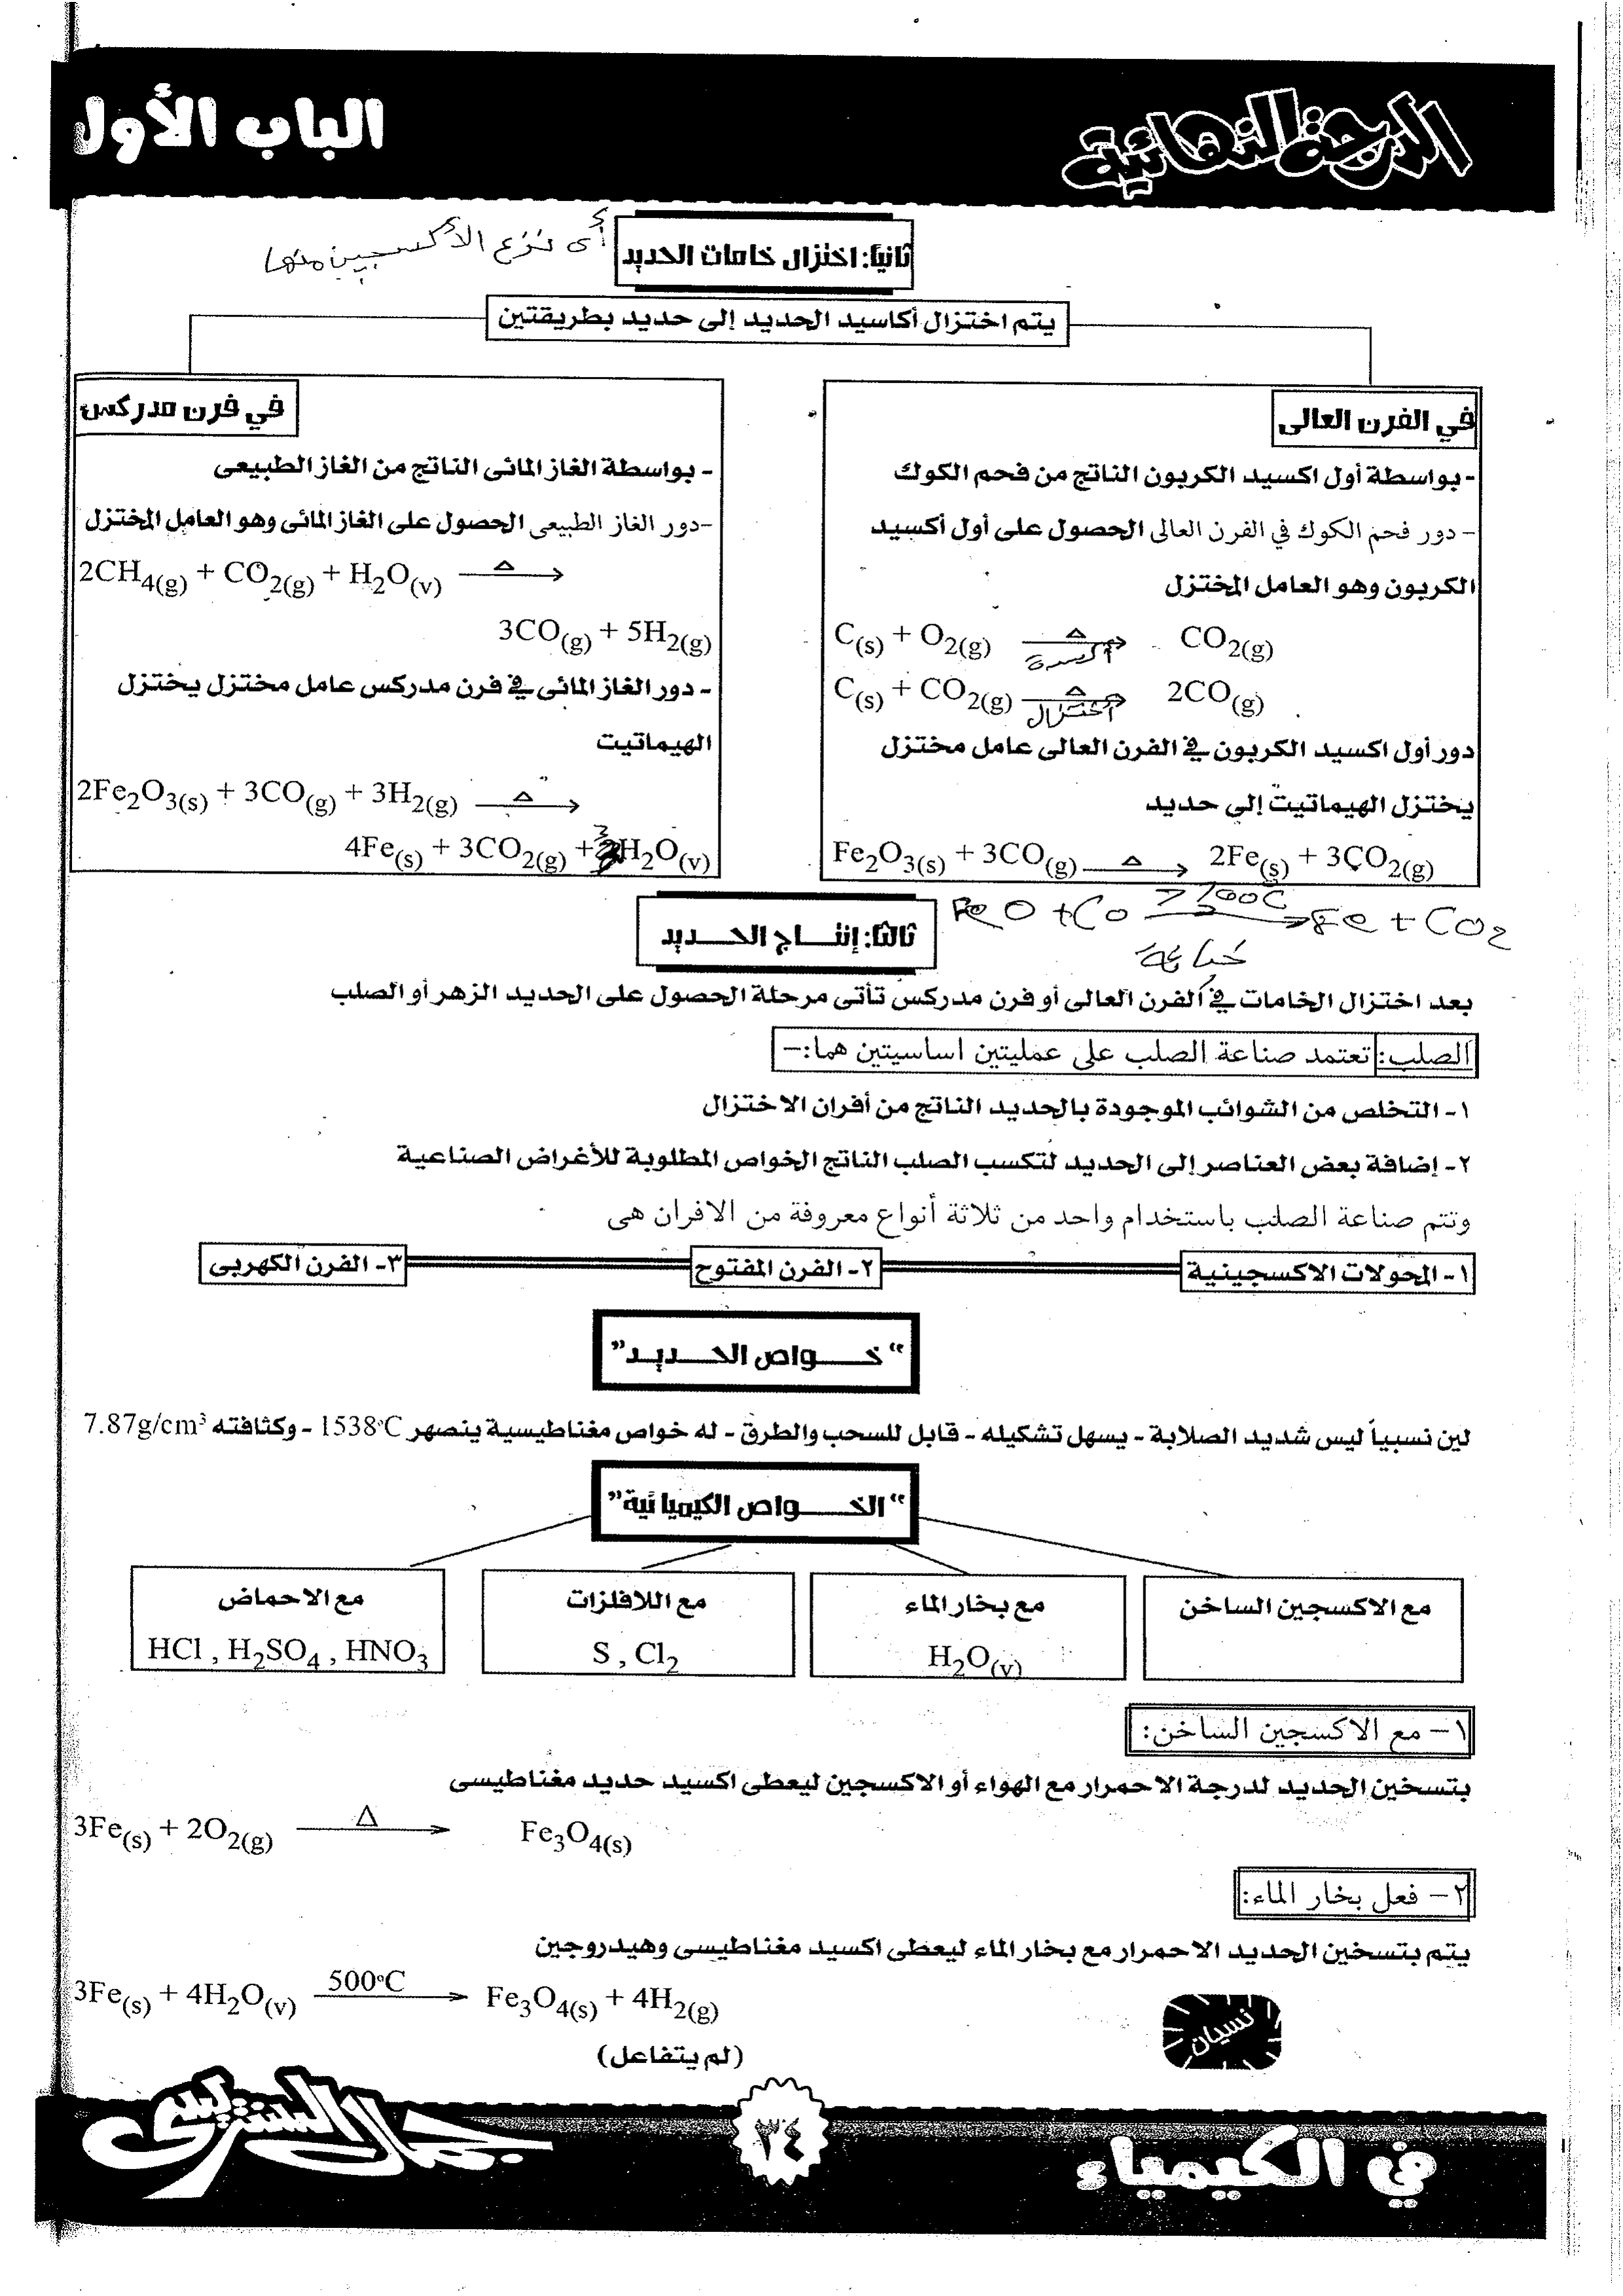 الدرجة النهائية
الباب الأول
ثانياً: اختزال خامات الحديد
أى نزع الأكسجين منها
يتم اختزال أكاسيد الحديد إلى حديد بطريقتين
في الفرن العالى
- بواسطة أول اكسيد الكربون الناتج من فحم الكوك
- دور فحم الكوك في الفرن العالى الحصول على أول أكسيد
الكربون وهو العامل المختزل
C(s) + O2(g) —Δ→ CO2(g)
أكسدة
C(s) + CO2(g) —Δ→ 2CO(g)
اختزال
دور أول اكسيد الكربون في الفرن العالى عامل مختزل
يختزل الهيماتيت إلى حديد
Fe2O3(s) + 3CO(g) —Δ→ 2Fe(s) + 3CO2(g)
في فرن مدركس
- بواسطة الغاز المائى الناتج من الغاز الطبيعى
-دور الغاز الطبيعى الحصول على الغاز المائى وهو العامل المختزل
2CH4(g) + CO2(g) + H2O(v) —Δ→
3CO(g) + 5H2(g)
- دور الغاز المائى في فرن مدركس عامل مختزل يختزل
الهيماتيت
2Fe2O3(s) + 3CO(g) + 3H2(g) —Δ→
4Fe(s) + 3CO2(g) + 3H2O(v)
FeO + CO → Fe + CO2
ثالثاً: إنتـــاج الحـــديد
بعد اختزال الخامات في الفرن العالى أو فرن مدركس تأتى مرحلة الحصول على الحديد الزهر أو الصلب
الصلب: تعتمد صناعة الصلب على عمليتين اساسيتين هما:-
١- التخلص من الشوائب الموجودة بالحديد الناتج من أفران الاختزال
٢- إضافة بعض العناصر إلى الحديد لتكسب الصلب الناتج الخواص المطلوبة للأغراض الصناعية
وتتم صناعة الصلب باستخدام واحد من ثلاثة أنواع معروفة من الافران هى
١- المحولات الاكسجينية
٢- الفرن المفتوح
٣- الفرن الكهربى
"خـــواص الحـــديد"
لين نسبياً ليس شديد الصلابة - يسهل تشكيله - قابل للسحب والطرق - له خواص مغناطيسية ينصهر 1538°C - وكثافته 7.87g/cm³
"الخـــواص الكيميائية"
مع الاكسجين الساخن
مع بخار الماء
H2O(v)
مع اللافلزات
S , Cl2
مع الاحماض
HCl , H2SO4 , HNO3
١- مع الاكسجين الساخن:
بتسخين الحديد لدرجة الاحمرار مع الهواء أو الاكسجين ليعطى اكسيد حديد مغناطيسى
3Fe(s) + 2O2(g) —Δ→ Fe3O4(s)
٢- فعل بخار الماء:
يتم بتسخين الحديد الاحمرار مع بخار الماء ليعطى اكسيد مغناطيسى وهيدروجين
3Fe(s) + 4H2O(v) —500°C→ Fe3O4(s) + 4H2(g)
نسيان
(لم يتفاعل)
في الكيمياء
٣٤
جمال السنتريسى